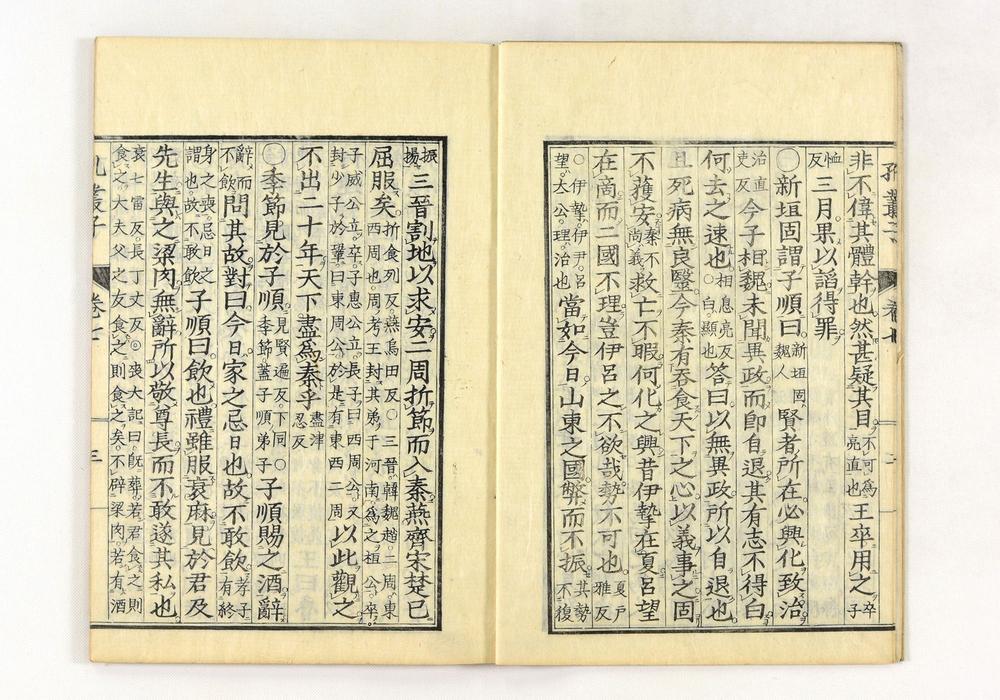 孔叢子 卷七 二
非不偉其體幹也然甚疑其目不可為亮直也王卒用之卒子
恤反三月果以諂得罪
〇新垣固謂子順曰新垣固魏人賢者所在必興化致治
治直吏反今子相魏未聞異政而即自退其有志不得白
何去之速也相息亮反〇白顯也答曰以無異政所以自退也
且死病無良醫今秦有吞食天下之心以義事之固
不獲安秦不尚義救亡不暇何化之興昔伊摯在夏呂望
在商而二國不理豈伊呂之不欲哉勢不可也夏戶雅反
〇伊摯伊尹呂望太公理治也當如今日山東之國弊而不振其勢不復
振揚三晉割地以求安二周折節而入秦燕齊宋楚已
屈服矣折食列反燕烏田反〇三晉韓魏趙二周東西周也周考王封其弟于河南為之桓公卒
子威公立卒子惠公立長子曰西周公又封少子於鞏曰東周公於是有東西二周以此觀之
不出二十年天下盡為秦乎盡津忍反
〇季節見於子順見賢遍反下同〇季節蓋子順弟子子順賜之酒辭
辭而不飲問其故對曰今日家之忌日也故不敢飲孝子有終
身之喪忌日之謂也故不敢飲子順曰飲也禮雖服衰麻見於君及
先生與之粱肉無辭所以敬尊長而不敢遂其私也
衰七雷反長丁丈反〇喪大記曰既葬若君食之則食之大夫父之友食之則食之矣不辟粱肉若有酒
孔叢子 卷七 三